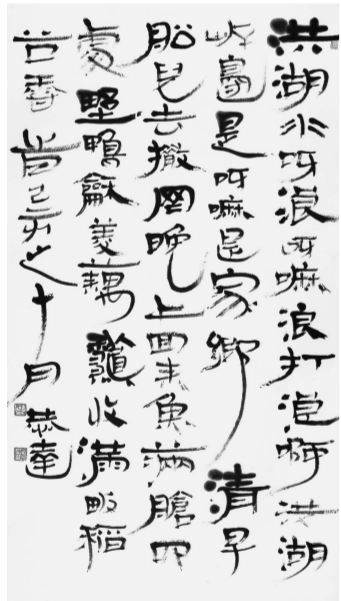 洪湖水呀浪呀嘛浪打浪啊洪湖
岸邊是呀嘛是家鄉清早
船兒去撒网晚上回来魚滿艙四
處野鴨龢菱藕龝收滿畈稻
谷香旹己亥之十月恭達